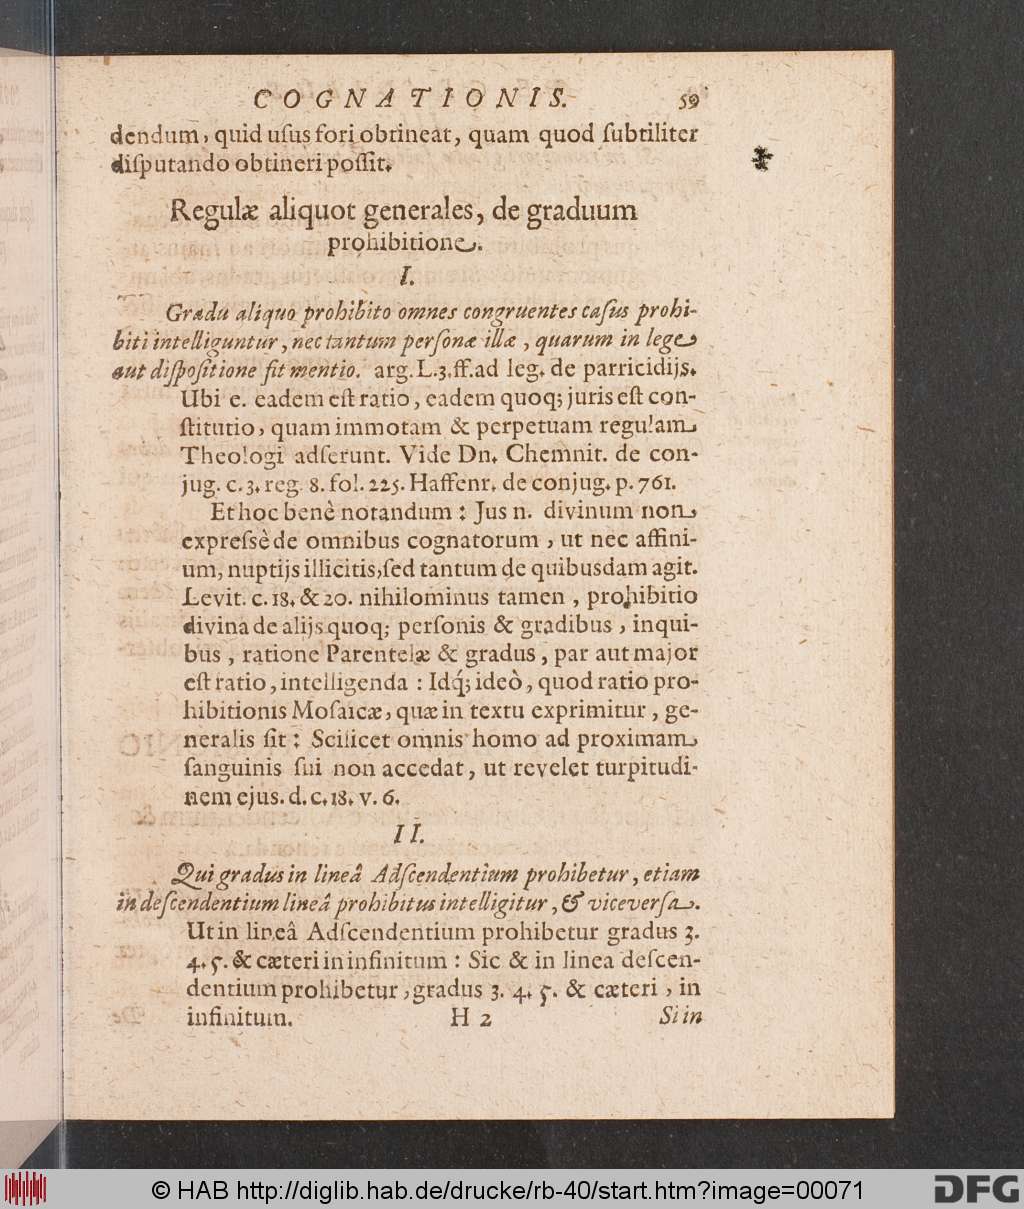 COGNATIONIS. 59
dendum, quid uſus fori obtineat, quam quod ſubtiliter
diſputando obtineri poſſit.
Regulæ aliquot generales, de graduum
prohibitione.
I.
Gradu aliquo prohibito omnes congruentes caſus prohi-
biti intelliguntur, nec tantum perſonæ illæ, quarum in lege
aut diſpoſitione fit mentio. arg. L. 3. ff. ad leg. de parricidijs.
Ubi e. eadem eſt ratio, eadem quoq; juris eſt con-
ſtitutio, quam immotam & perpetuam regulam
Theologi adſerunt. Vide Dn. Chemnit. de con-
jug. c. 3. reg. 8. fol. 225. Haffenr. de conjug. p. 761.
Et hoc benè notandum: Jus n. divinum non
expreſsè de omnibus cognatorum, ut nec affini-
um, nuptijs illicitis, ſed tantum de quibusdam agit.
Levit. c. 18. & 20. nihilominus tamen, prohibitio
divina de alijs quoq; perſonis & gradibus, inqui-
bus, ratione Parentelæ & gradus, par aut major
eſt ratio, intelligenda: Idq́; ideò, quod ratio pro-
hibitionis Moſaicæ, quæ in textu exprimitur, ge-
neralis ſit: Scilicet omnis homo ad proximam
ſanguinis ſui non accedat, ut revelet turpitudi-
nem ejus. d. c. 18. v. 6.
II.
Qui gradus in lineâ Adſcendentium prohibetur, etiam
in deſcendentium lineâ prohibitus intelligitur, & viceverſa.
Ut in lineâ Adſcendentium prohibetur gradus 3.
4. 5. & cæteri in infinitum: Sic & in linea deſcen-
dentium prohibetur, gradus 3. 4. 5. & cæteri, in
infinitum. H 2 Si in
© HAB http://diglib.hab.de/drucke/rb-40/start.htm?image=00071 DFG